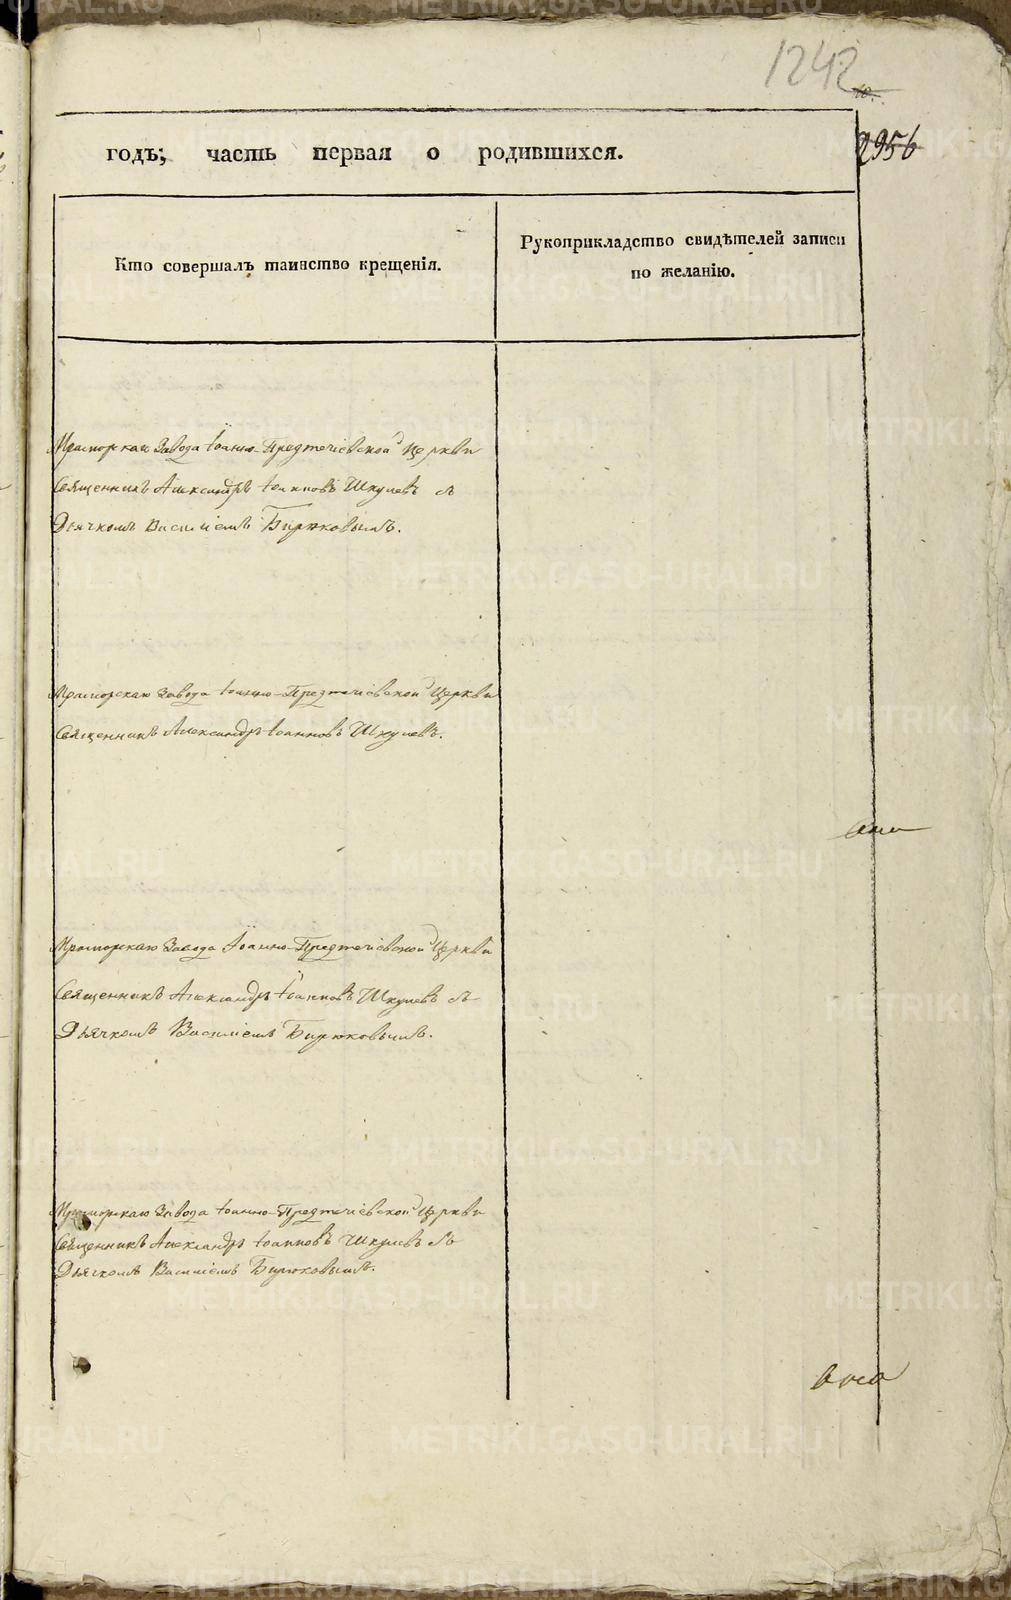 1242
10.
2956
годъ; часть первая о родившихся.
Кто совершалъ таинство крещенія.
Рукоприкладство свидѣтелей записи
по желанію.
Мраморскаго Завода Іоанно-Предтечіевской Церкви
Священникъ Александръ Іоанновъ Шкулевъ съ
Дьячкомъ Василіемъ Бирюковымъ.
Мраморскаго Завода Іоанно-Предтечіевской Церкви
Священникъ Александръ Іоанновъ Шкулевъ.
Мраморскаго Завода Іоанно-Предтечіевской Церкви
Священникъ Александръ Іоанновъ Шкулевъ съ
Дьячкомъ Василіемъ Бирюковымъ.
Мраморскаго Завода Іоанно-Предтечіевской Церкви
Священникъ Александръ Іоанновъ Шкулевъ съ
Дьячкомъ Василіемъ Бирюковымъ.
METRIKI.GASO-URAL.RU